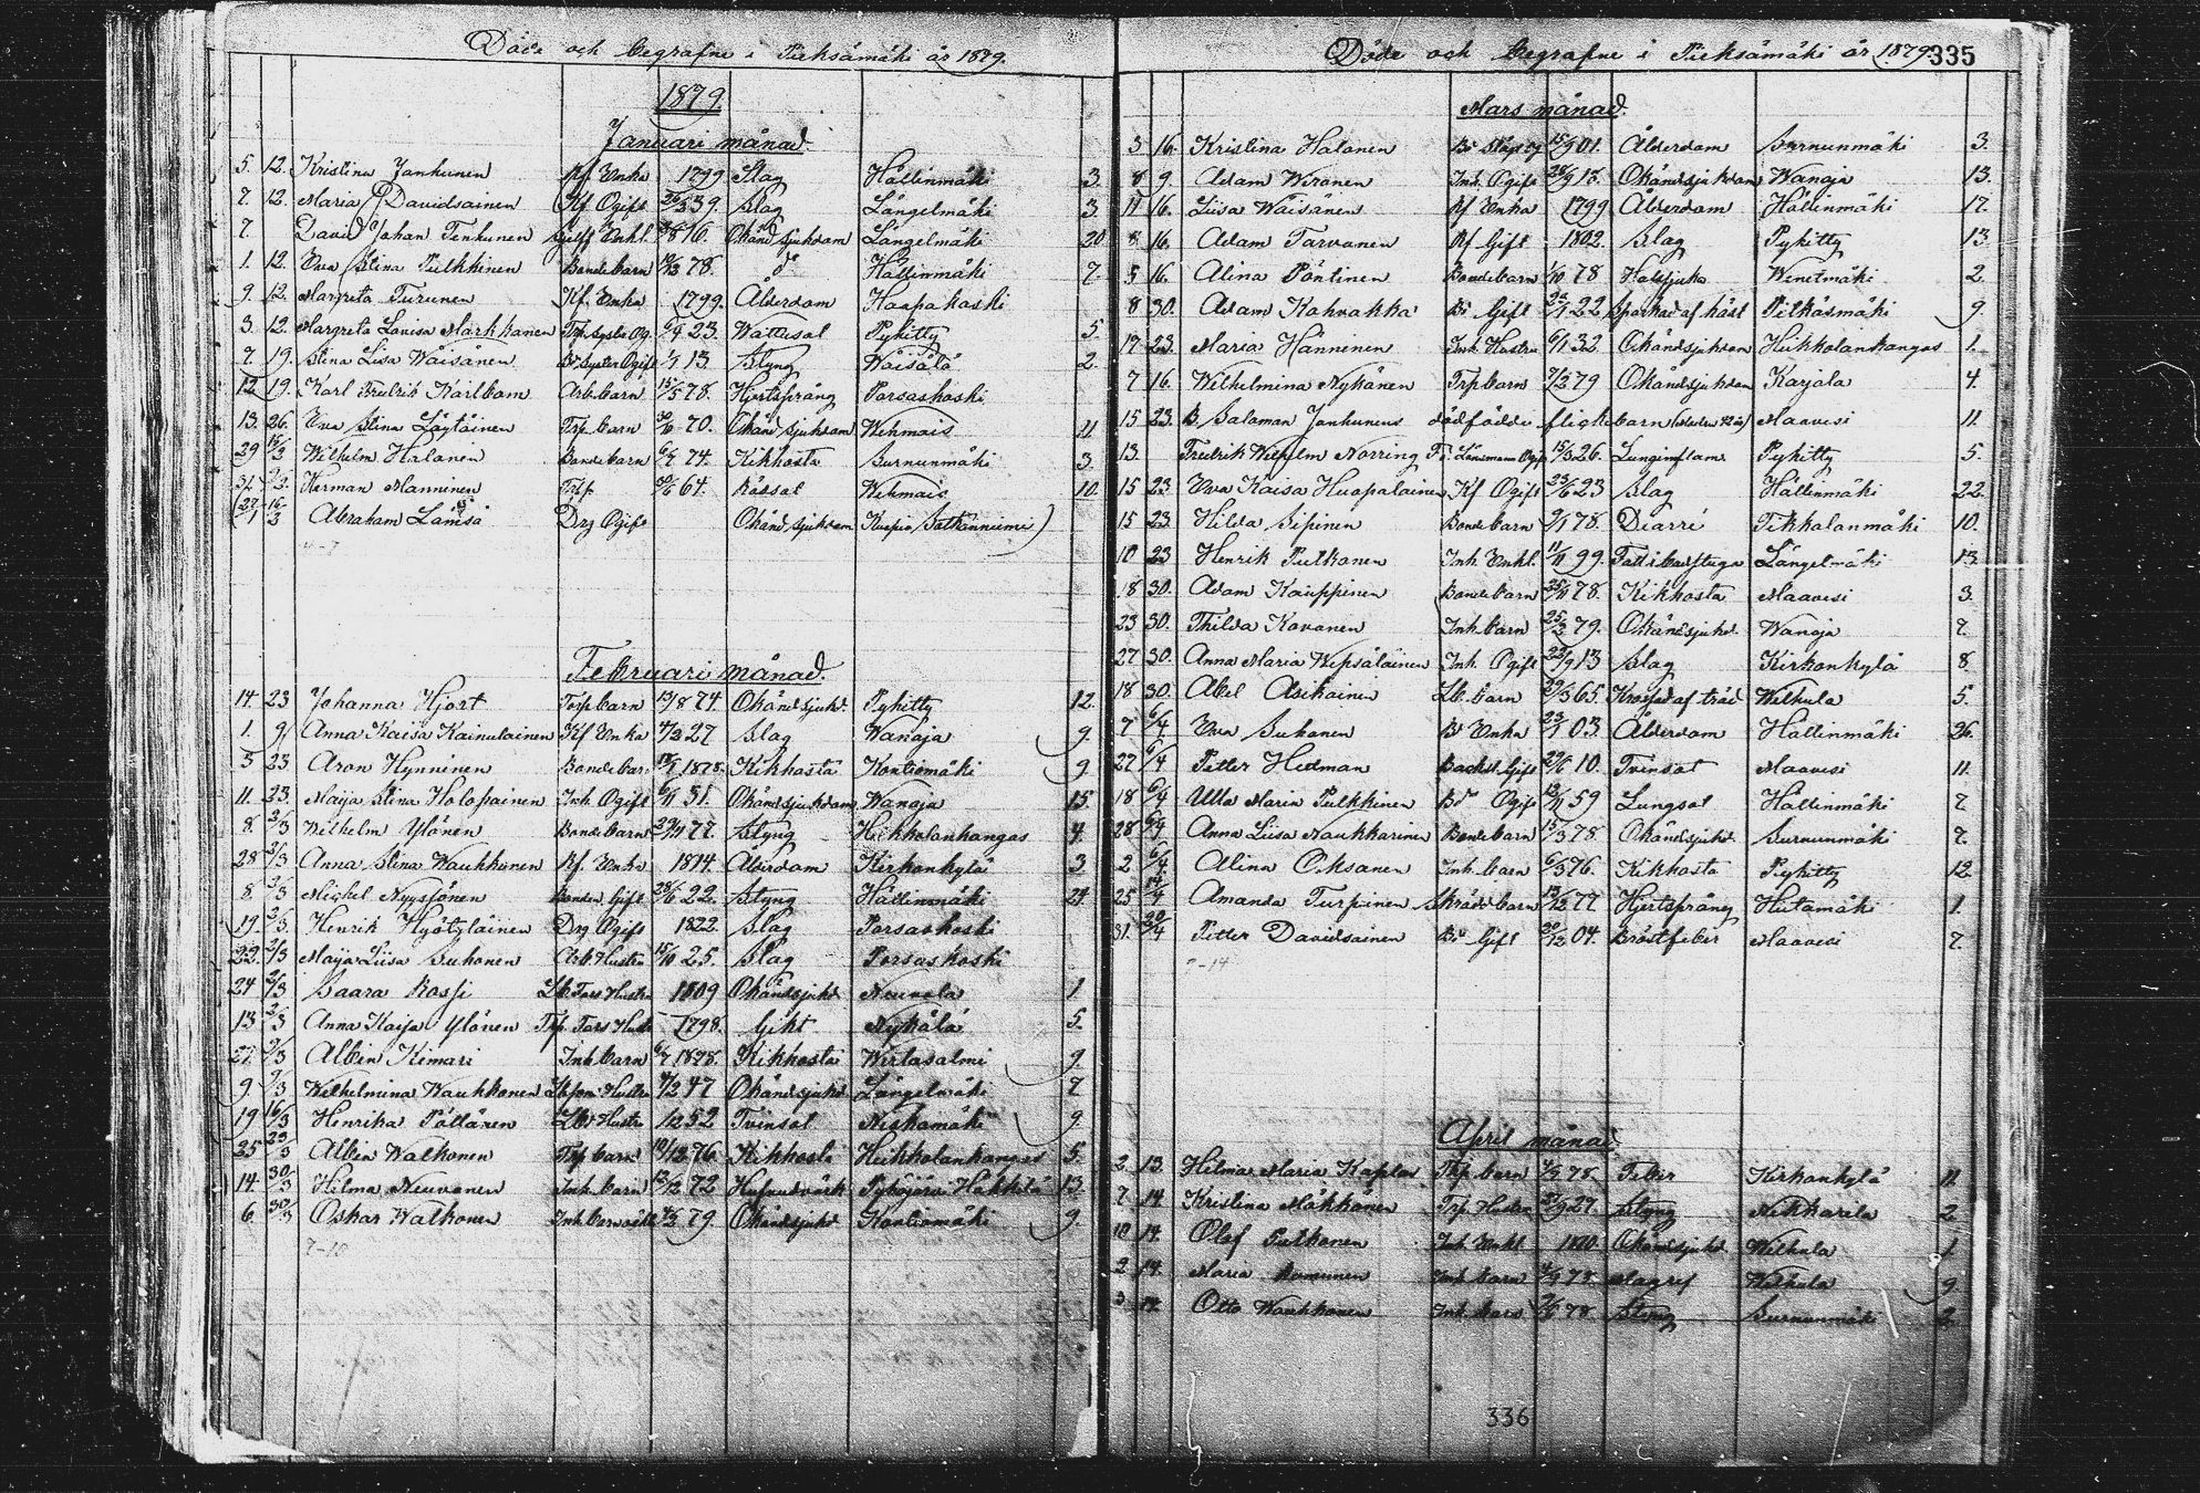 Döde och begrafne i Pieksämäki år 1879.
1879.
Januari månad.
5. 12. Kristina Janhunen Kf. Enka 1799 Slag Hällinmäki 3.
7. 12. Maria Davidsainen Kf Ogift 39. Slag Längelmäki 3.
7. David Johan Tenhunen Enkl. 16. Okänd sjukdom Längelmäki 20.
1. 12. Eva Stina Pulkkinen Bondebarn 78. do Hällinmäki 7.
9. 12. Margreta Turunen Kf. Enka 1799. Ålderdom Haapakoski
3. 12. Margreta Lovisa Markkanen Trp. Syster Og. 23. Wattusot Pyhitty 5.
7. 19. Stina Lisa Wäisänen Bd. Syster Ogift 13. Styng Wäisälä 2.
12. 19. Karl Fredrik Karlbom Arb. barn 15/5 78. Hjertsprång Porsaskoski
13. 26. Eva Stina Läytäinen Trp. barn 70. Okänd sjukdom Wehmais 11.
29 Wilhelm Halonen Bondebarn 74. Kikhosta Surnunmäki 3.
31. Herman Manninen Trp. 30/6 64. Rössot Wehmais 10.
(27/1 16/3 Abraham Lämsä Drg Ogift Okänd sjukdom Kuopio Satkänniemi)
Februari månad.
14. 23 Johanna Hjort Torp. barn 13/8 74. Okänd sjukd. Pyhitty 12.
1. 9 Anna Kaisa Kainulainen Kf Enka 27 Slag Wanaja 9.
3 23 Aron Hynninen Bondebarn 1878. Kikhosta Kontiomäki 9.
11. 23. Maija Stina Holopainen Inh. Ogift 6/11 51. Okänd sjukdom Wanaja 15.
8. 2/3 Wilhelm Ylönen Bondebarn 77. Styng Heikkolankangas 4.
28 2/3 Anna Stina Waukkonen Kf. Enka 1814. Ålderdom Kirkonkylä 3
8. 2/3 Mickel Nyyssönen Bonden Gift 28/6 22. Styng Hällinmäki 24.
19. 2/3. Henrik Hyötyläinen Drg Ogift 1822. Slag Porsaskoski
22. 2/3 Maija Liisa Suhonen Arb. Hustru 15/10 25. Slag Porsaskoski
24 2/3 Saara Rossi Hustru 1809 Okänd sjukd Neuvola 1
13 2/3 Anna Kaisa Ylönen Trp. Fars Hustru 1798. Gikt Nykälä 5.
27. 2/3 Albin Kimari Inh barn 1878. Kikhosta Wirtasalmi 9.
9. 9/3 Wilhelmina Waukkonen Hustru 4/2 47 Okänd sjukd Längelmäki 7
19 16/3 Henrika Pöllänen Hustru 52 Tvinsot Niskamäki 9.
25 23/3 Albin Walkonen Trp barn 10/12 76. Kikhosta Heikkolankangas 5.
14. 30/3 Hilma Neuvonen Inh. barn 72 Hufvudvärk Pyhäjärvi Häkkilä 13.
6. 30/3 Oskar Walkonen Inh. barn 4/2 79. Okänd sjukd Kontiomäki 9.
7-10
Döde och begrafne i Pieksämäki år 1879.
335
Mars månad.
3 16. Kristina Halonen Bd 15/9 01. Ålderdom Surnunmäki 3.
8 9. Adam Wironen Inh. Ogift 18. Okänd sjukdom Wanaja 13.
11 16. Liisa Wäisänen Kf Enka 1799 Ålderdom Hällinmäki 17.
3. 16. Adam Tarvanen Kf Gift 1802. Slag Pyhitty 13.
5 16. Alina Pöntinen Bondebarn 1/10 78 Halssjuka Wenetmäki 2.
8 30. Adam Kahvakka Bd Gift 22 Sparkad af häst Pitkäsmäki 9.
17 23. Maria Hänninen Inh. Hustru 6/1 32. Okänd sjukdom Heikkolankangas 1.
7 16. Wilhelmina Nykänen Trp barn 7/2 79 Okänd sjukdom Karjala 4.
15 23. B. Saloman Janhunens dödfödde flickebarn (Moder 42 år) Maavesi 11.
13. Fredrik Wilhelm Norring Länsman Ogift 15/3 26. Lunginflam. Pyhitty 5.
15 23 Eva Kaisa Huopalainen Kf Ogift 23/6 23 Slag Hällinmäki 22.
15 23. Hilda Sipinen Bondebarn 9/1 78. Diarré Tikkalanmäki 10.
10 23 Henrik Pulkonen Inh. Enkl. 11/11 99. Fall i badstuga Längelmäki 13.
18 30. Adam Kauppinen Bondebarn 25/11 78. Kikhosta Maavesi 3.
23 30. Thilda Kovanen Inh. barn 25/2 79. Okänd sjukd. Wanaja 7.
27 30. Anna Maria Wepsäläinen Inh. Ogift 13 Slag Kirkonkylä 8.
18 30. Abel Asikainen Lb. barn 65. Krossad af träd Weihula 5.
7 6/4. Eva Suhonen Bd Enka 03. Ålderdom Hällinmäki 26.
27 6/4 Petter Hedman Backst. Gift 10. Tvinsot Maavesi 11.
18 6/4 Ulla Maria Pulkkinen Bd Ogift 59 Lungsot Hällinmäki 7.
28 6/4 Anna Liisa Naukkarinen Bondebarn 78. Okänd sjukd. Surnunmäki 7.
2 6/4. Alina Oksanen Inh. barn 6/3 76. Kikhosta Pyhitty 12.
25 Amanda Turpinen Skrädd. barn 13/12 77 Hjertsprång Hietamäki 1.
31. 20/4 Petter Davidsainen Bd Gift 20/12 04. Bröstfeber Maavesi 7.
7-14
April månad.
2. 13. Hilma Maria Kaplas Trp. barn 78. Feber Kirkonkylä 11.
7. 14 Kristina Mäkkänen Trp. Hustru 27. Styng Nikkarila 2
10 14. Olof Pulkonen Inh. Enkl 1810. Okänd sjukd. Weihula 1.
2 14. Maria Romunen Inh. barn 78. Magref Weihula 9
3 14. Otto Waukkonen Inh. barn 78. Styng Surnunmäki 2.
336